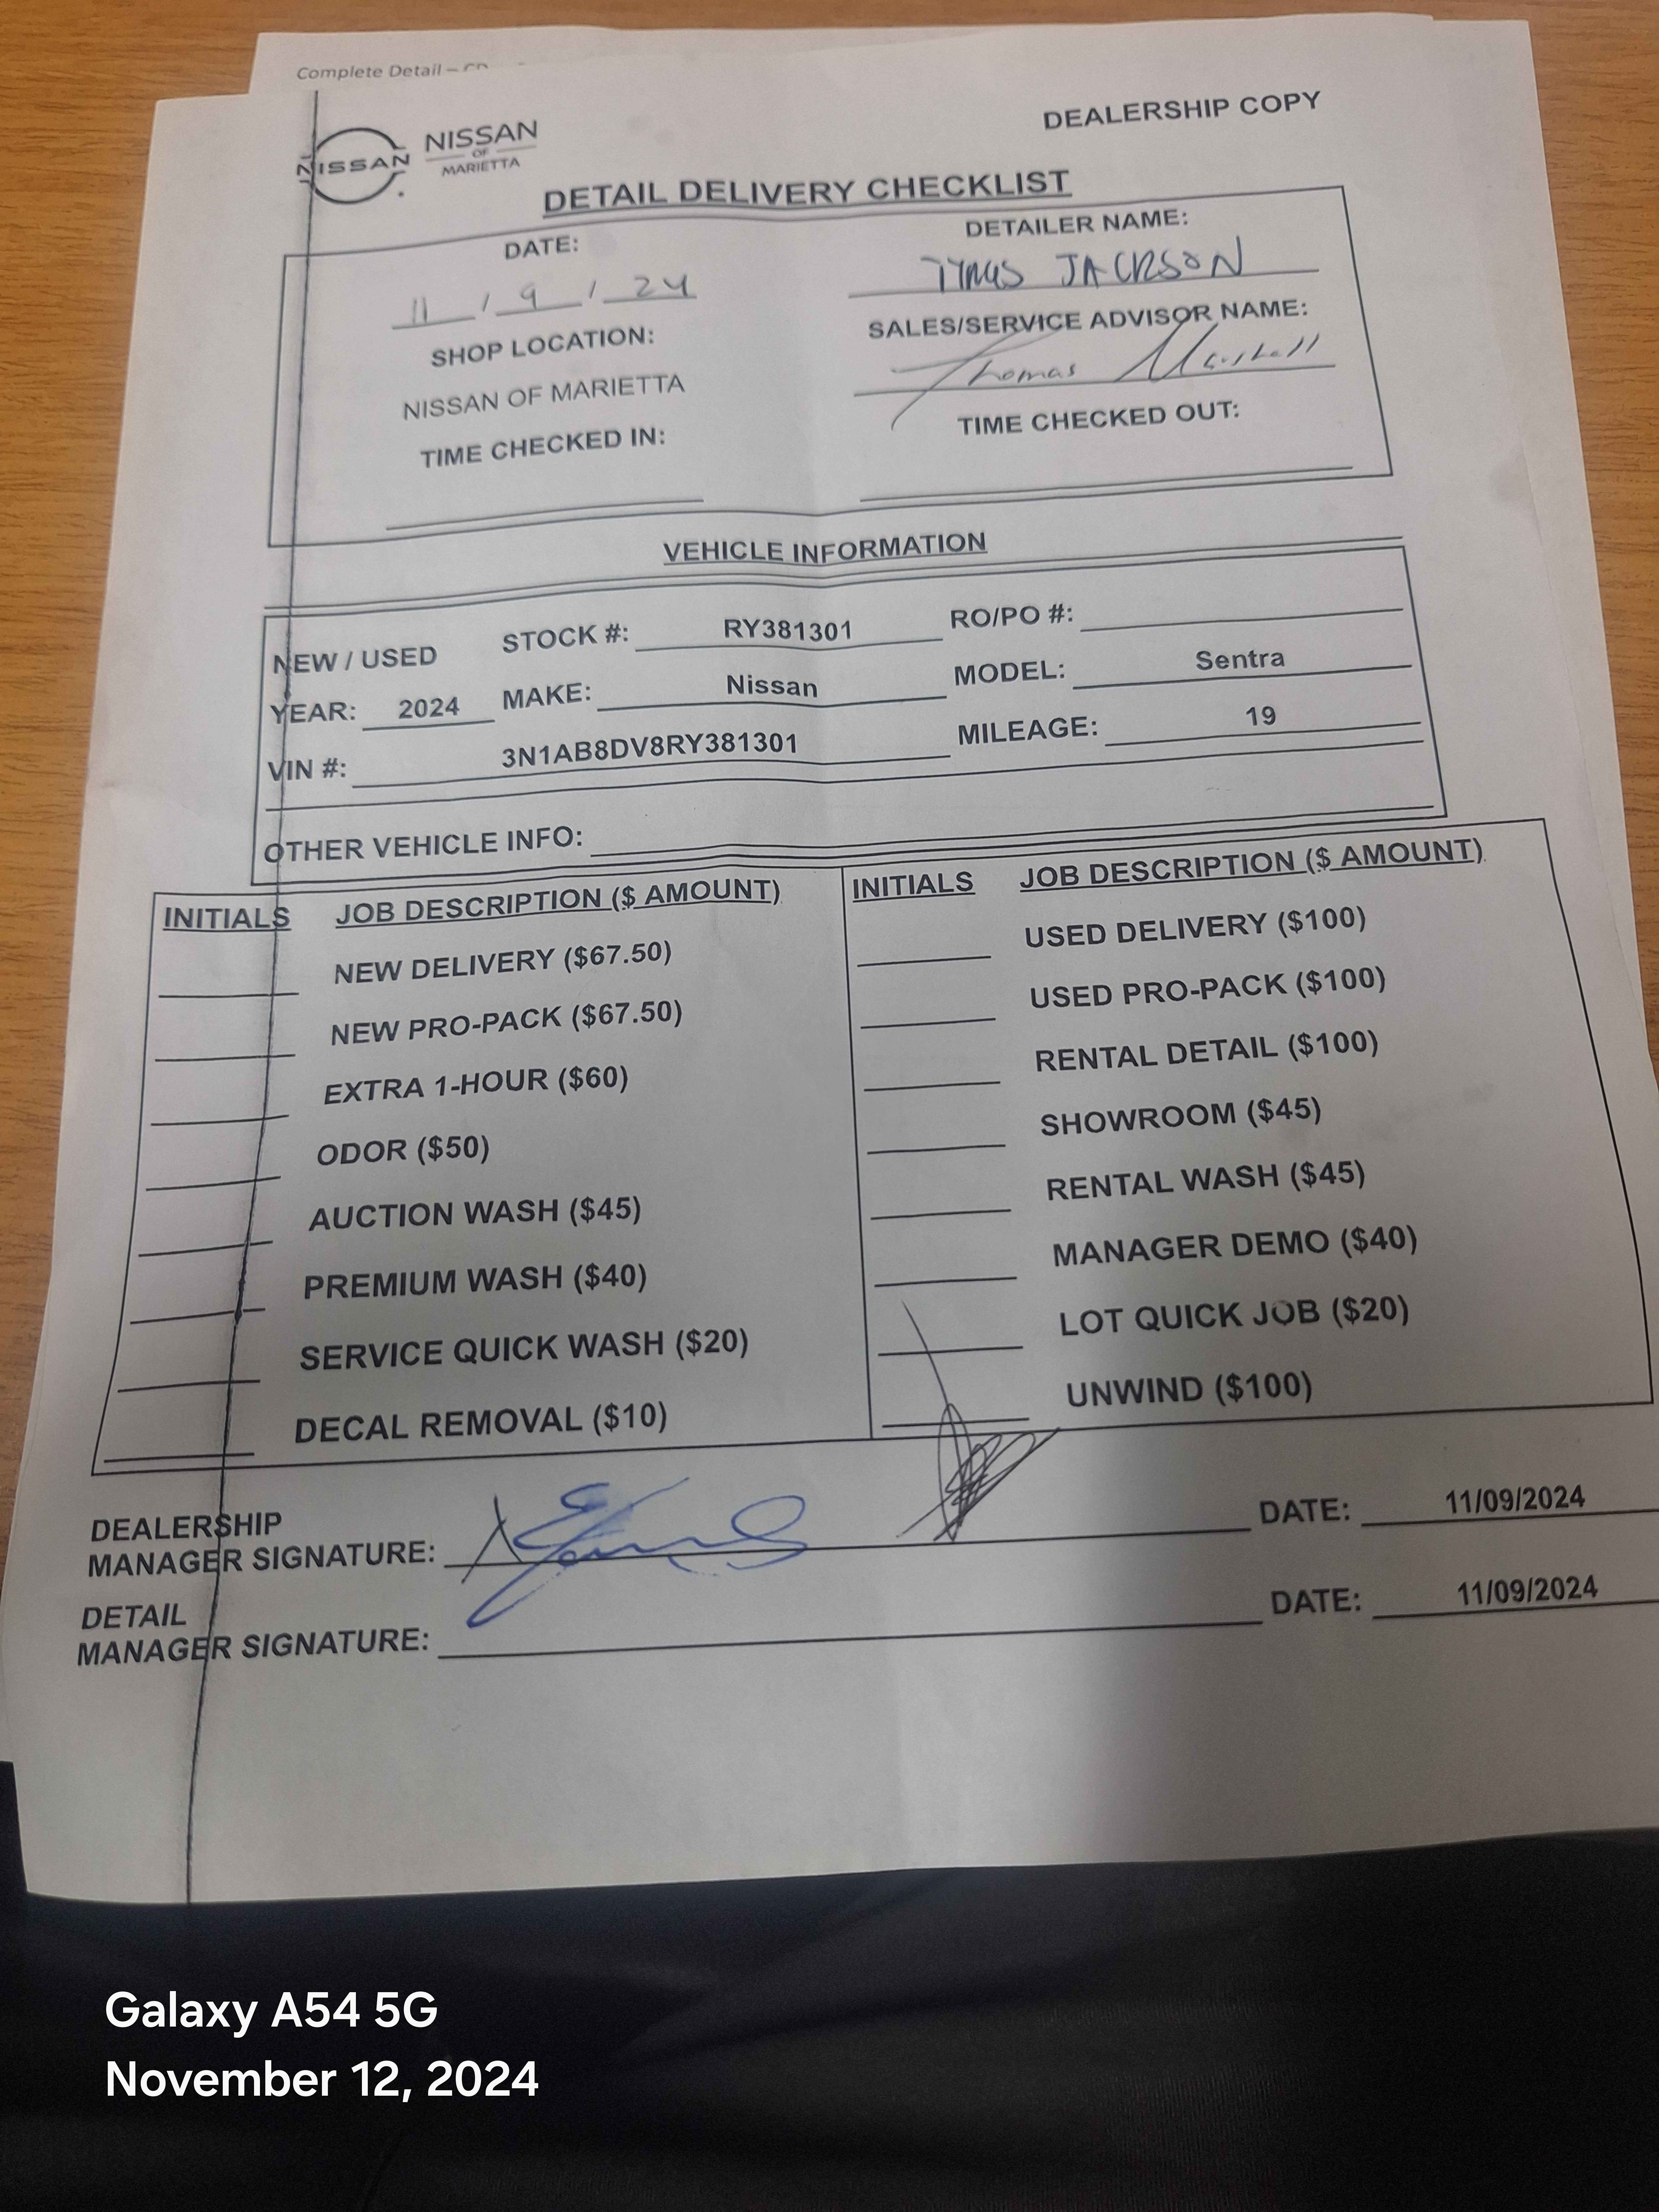 Complete Detail –
DEALERSHIP COPY
NISSAN
NISSAN
OF
MARIETTA
DETAIL DELIVERY CHECKLIST
DATE:
11 / 9 / 24
DETAILER NAME:
JACKSON
SHOP LOCATION:
NISSAN OF MARIETTA
SALES/SERVICE ADVISOR NAME:
Thomas
TIME CHECKED IN:
TIME CHECKED OUT:
VEHICLE INFORMATION
NEW / USED STOCK #: RY381301 RO/PO #:
YEAR: 2024 MAKE: Nissan MODEL: Sentra
VIN #: 3N1AB8DV8RY381301 MILEAGE: 19
OTHER VEHICLE INFO:
INITIALS JOB DESCRIPTION ($ AMOUNT)
NEW DELIVERY ($67.50)
NEW PRO-PACK ($67.50)
EXTRA 1-HOUR ($60)
ODOR ($50)
AUCTION WASH ($45)
PREMIUM WASH ($40)
SERVICE QUICK WASH ($20)
DECAL REMOVAL ($10)
INITIALS JOB DESCRIPTION ($ AMOUNT)
USED DELIVERY ($100)
USED PRO-PACK ($100)
RENTAL DETAIL ($100)
SHOWROOM ($45)
RENTAL WASH ($45)
MANAGER DEMO ($40)
LOT QUICK JOB ($20)
UNWIND ($100)
DEALERSHIP
MANAGER SIGNATURE: X DATE: 11/09/2024
DETAIL
MANAGER SIGNATURE: DATE: 11/09/2024
Galaxy A54 5G
November 12, 2024